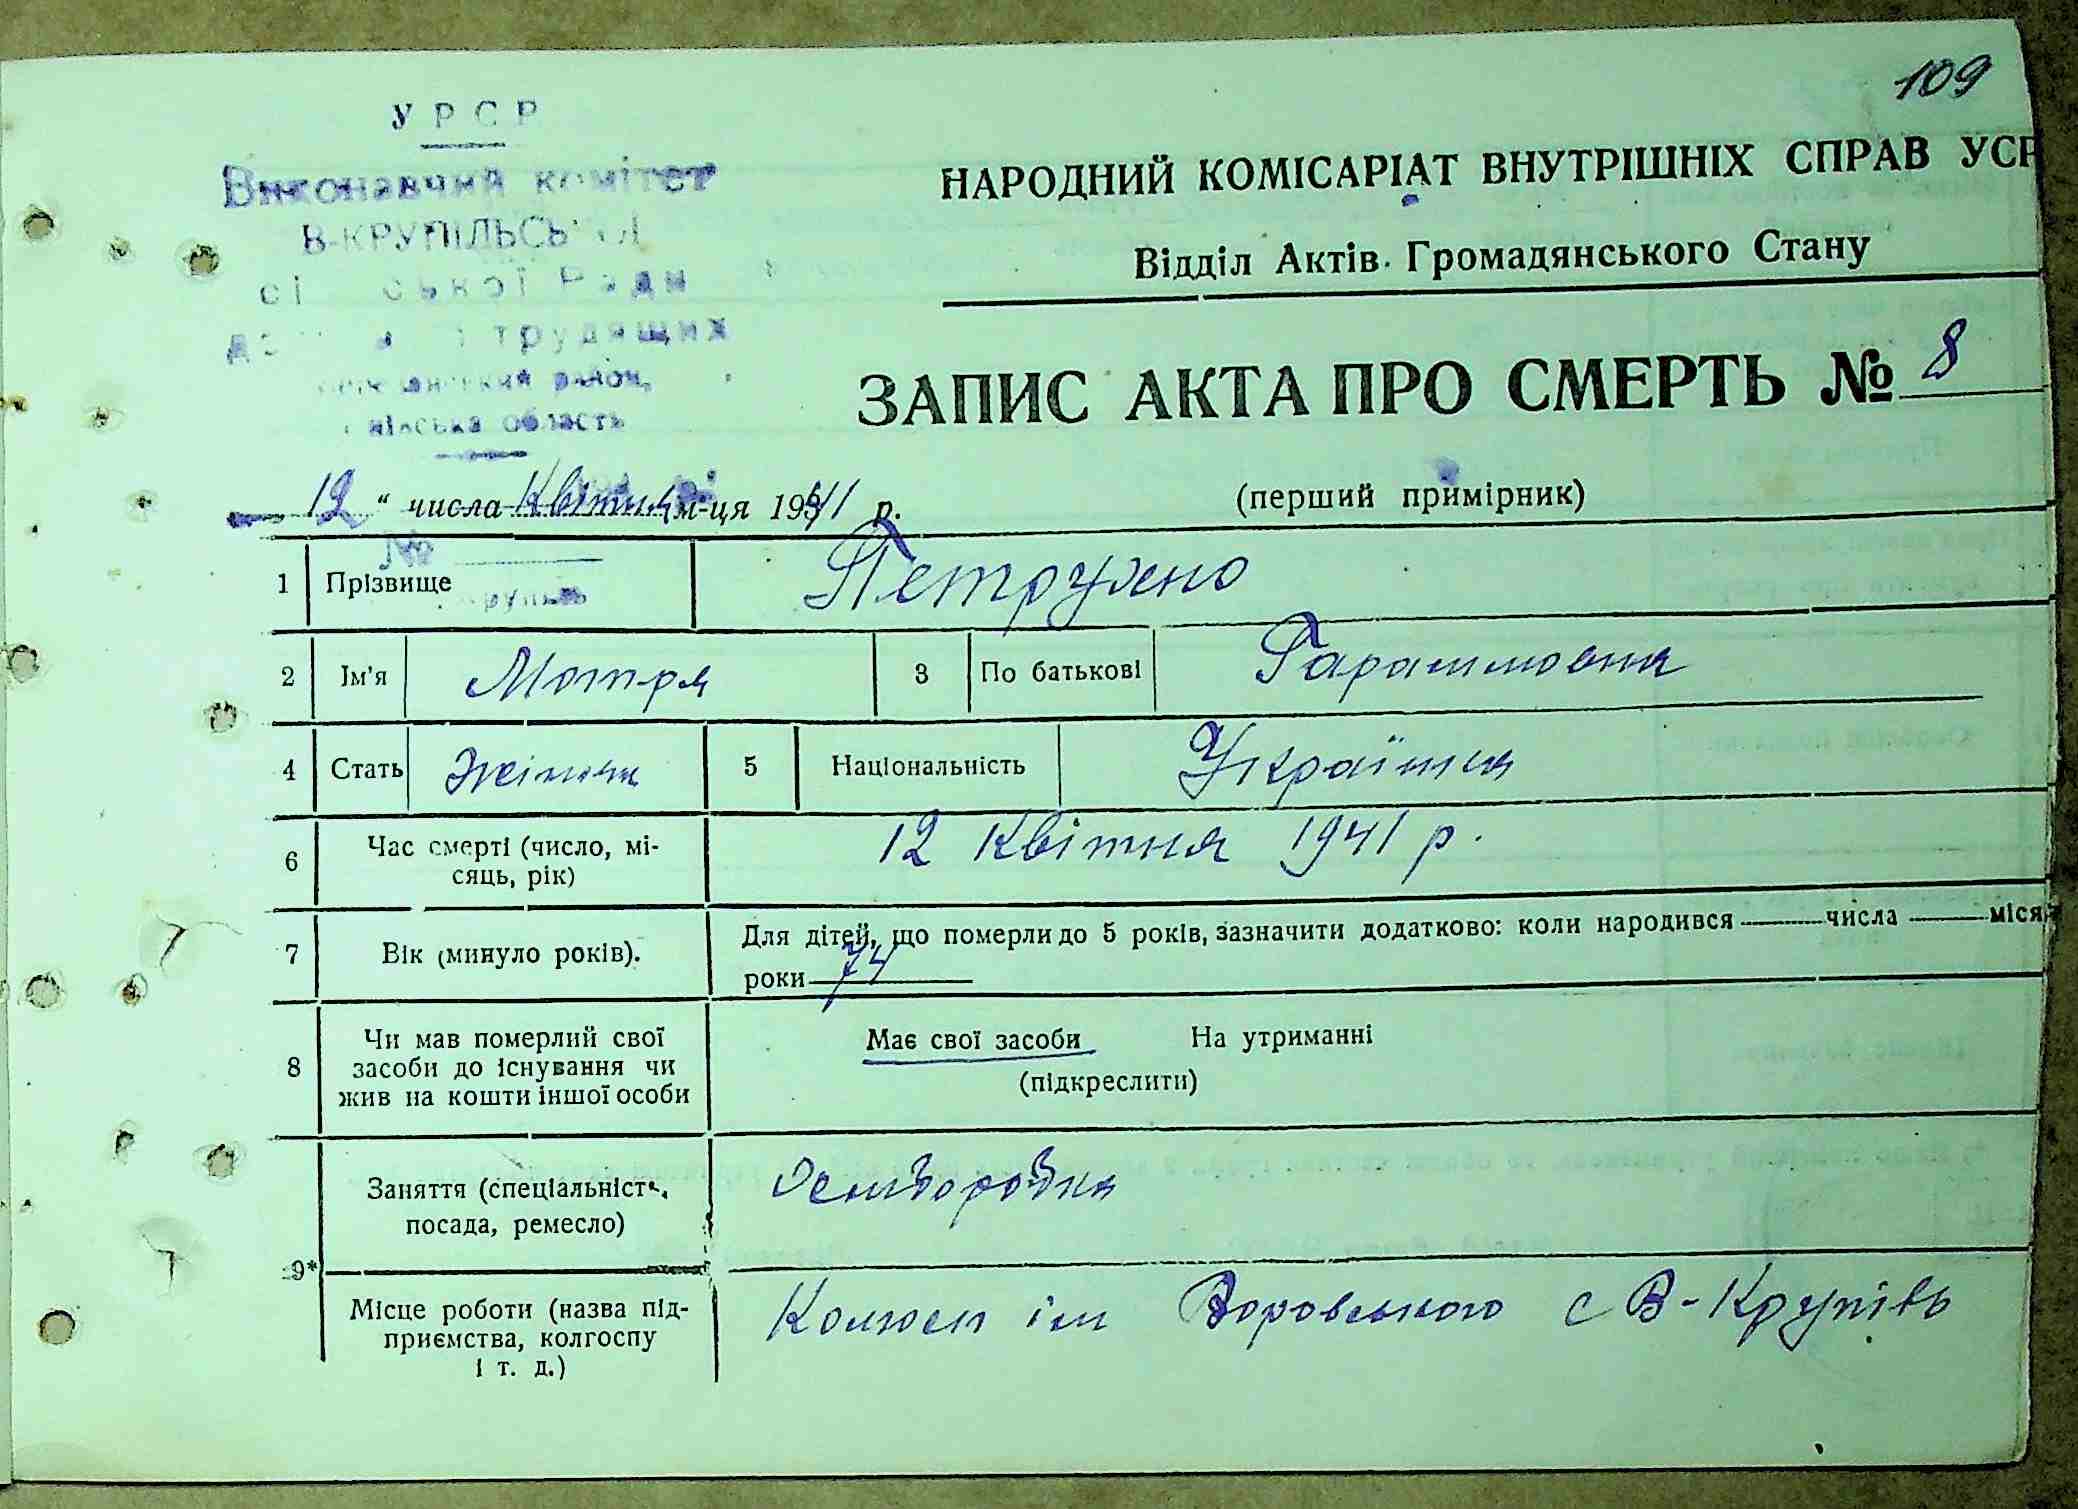 109
УРСР
Виконавчий комітет
В-КРУПІЛЬСЬ
Ради
трудящих
район,
область
НАРОДНИЙ КОМІСАРІАТ ВНУТРІШНІХ СПРАВ УСР
Відділ Актів Громадянського Стану
ЗАПИС АКТА ПРО СМЕРТЬ № 8
(перший примірник)
12 " числа Квітня м-ця 1941 р.
№
1 Прізвище Петрухно
2 Ім'я Мотря 3 По батькові Гарасимовна
4 Стать Жіноча 5 Національність Українка
6 Час смерті (число, мі-
сяць, рік) 12 Квітня 1941 р.
7 Вік (минуло років). Для дітей, що померли до 5 років, зазначити додатково: коли народився числа міся
роки 74
8 Чи мав померлий свої
засоби до існування чи
жив на кошти іншої особи
Має свої засоби На утриманні
(підкреслити)
9* Заняття (спеціальність,
посада, ремесло)
Місце роботи (назва під-
приємства, колгоспу
і т. д.)
Колгосп ім Воровського с В-Крупіль